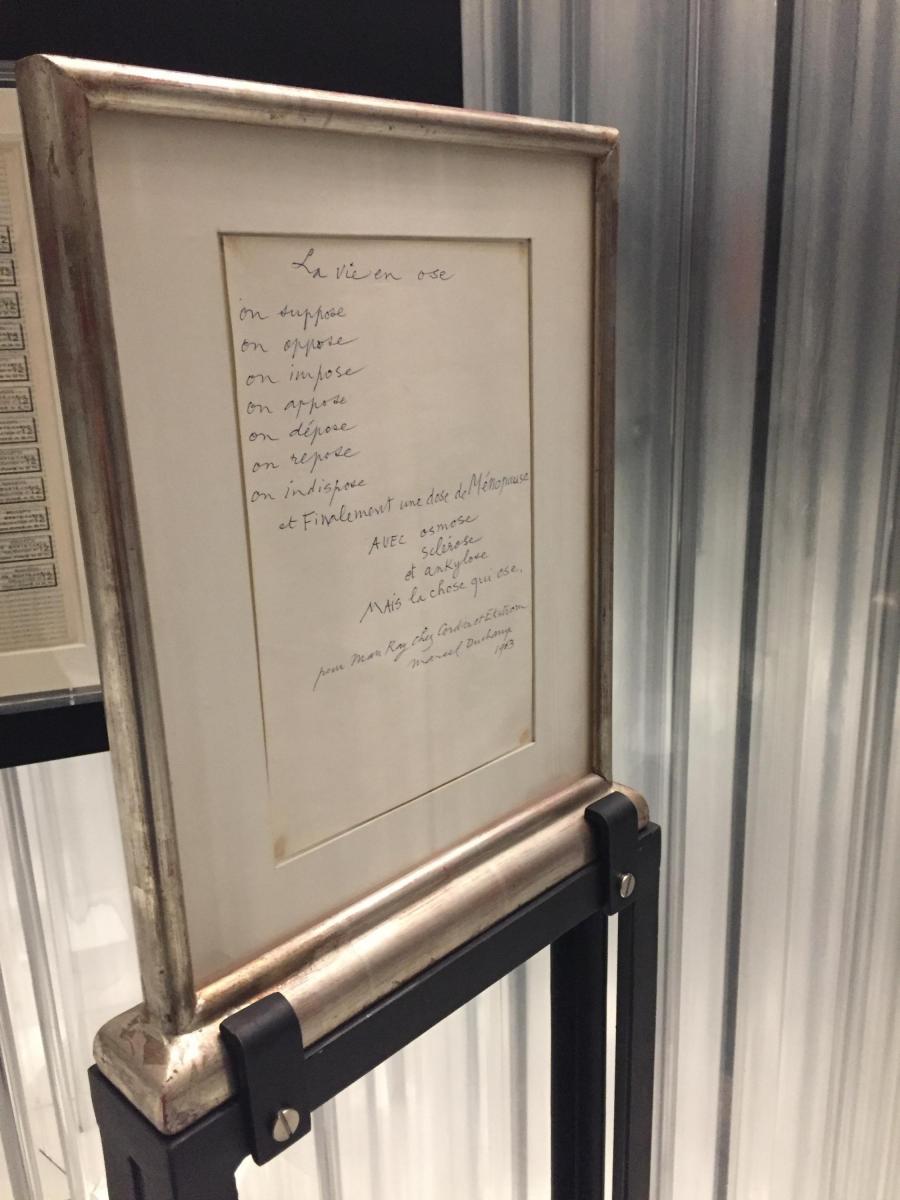 La vie en ose
on suppose
on oppose
on impose
on appose
on dépose
on repose
on indispose
et Finalement une dose de Ménopause
AVEC osmose
sclérose
et ankylose
MAis la chose qui ose.
pour Man Ray chez Cordier et Ekstrom
Marcel Duchamp
1963